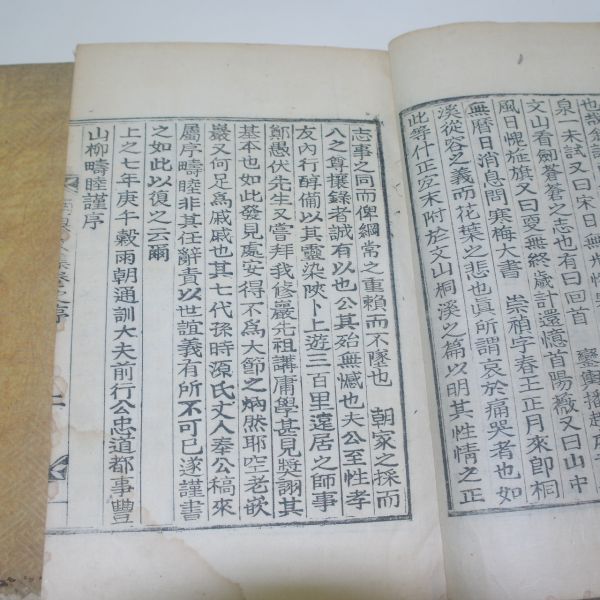 也
泉一未試又曰宋日無
文山看劍蒼蒼之志也有曰回首 鑾輿播越
風日愧旌旗又曰更無終歲計還憶首陽薇又曰山中
無曆日消息問寒梅大書 崇禎字春王正月來卽桐
溪從容之義而花葉之悲也眞所謂哀於痛哭者也如
此等什正宜末附於文山桐溪之篇以明其性情之正
志事之同而俾綱常之重賴而不墜也 朝家之採而
八之尊攘錄者誠有以也公其殆無憾也夫公至性孝
友內行醇備以其靈染陜卜上遊三百里遠居之師事
鄭愚伏先生又嘗拜我修巖先祖講庸學甚見奬詡其
基本也如此發見處安得不爲大節之炳然耶空老嵌
巖又何足爲戚戚也其七代孫時源氏丈人奉公稿來
屬序疇睦非其任辭責以世誼義有所不可已遂謹書
之如此以復之云爾
上之七年庚午穀雨朝通訓大夫前行公忠道都事豐
山柳疇睦謹序
序
二